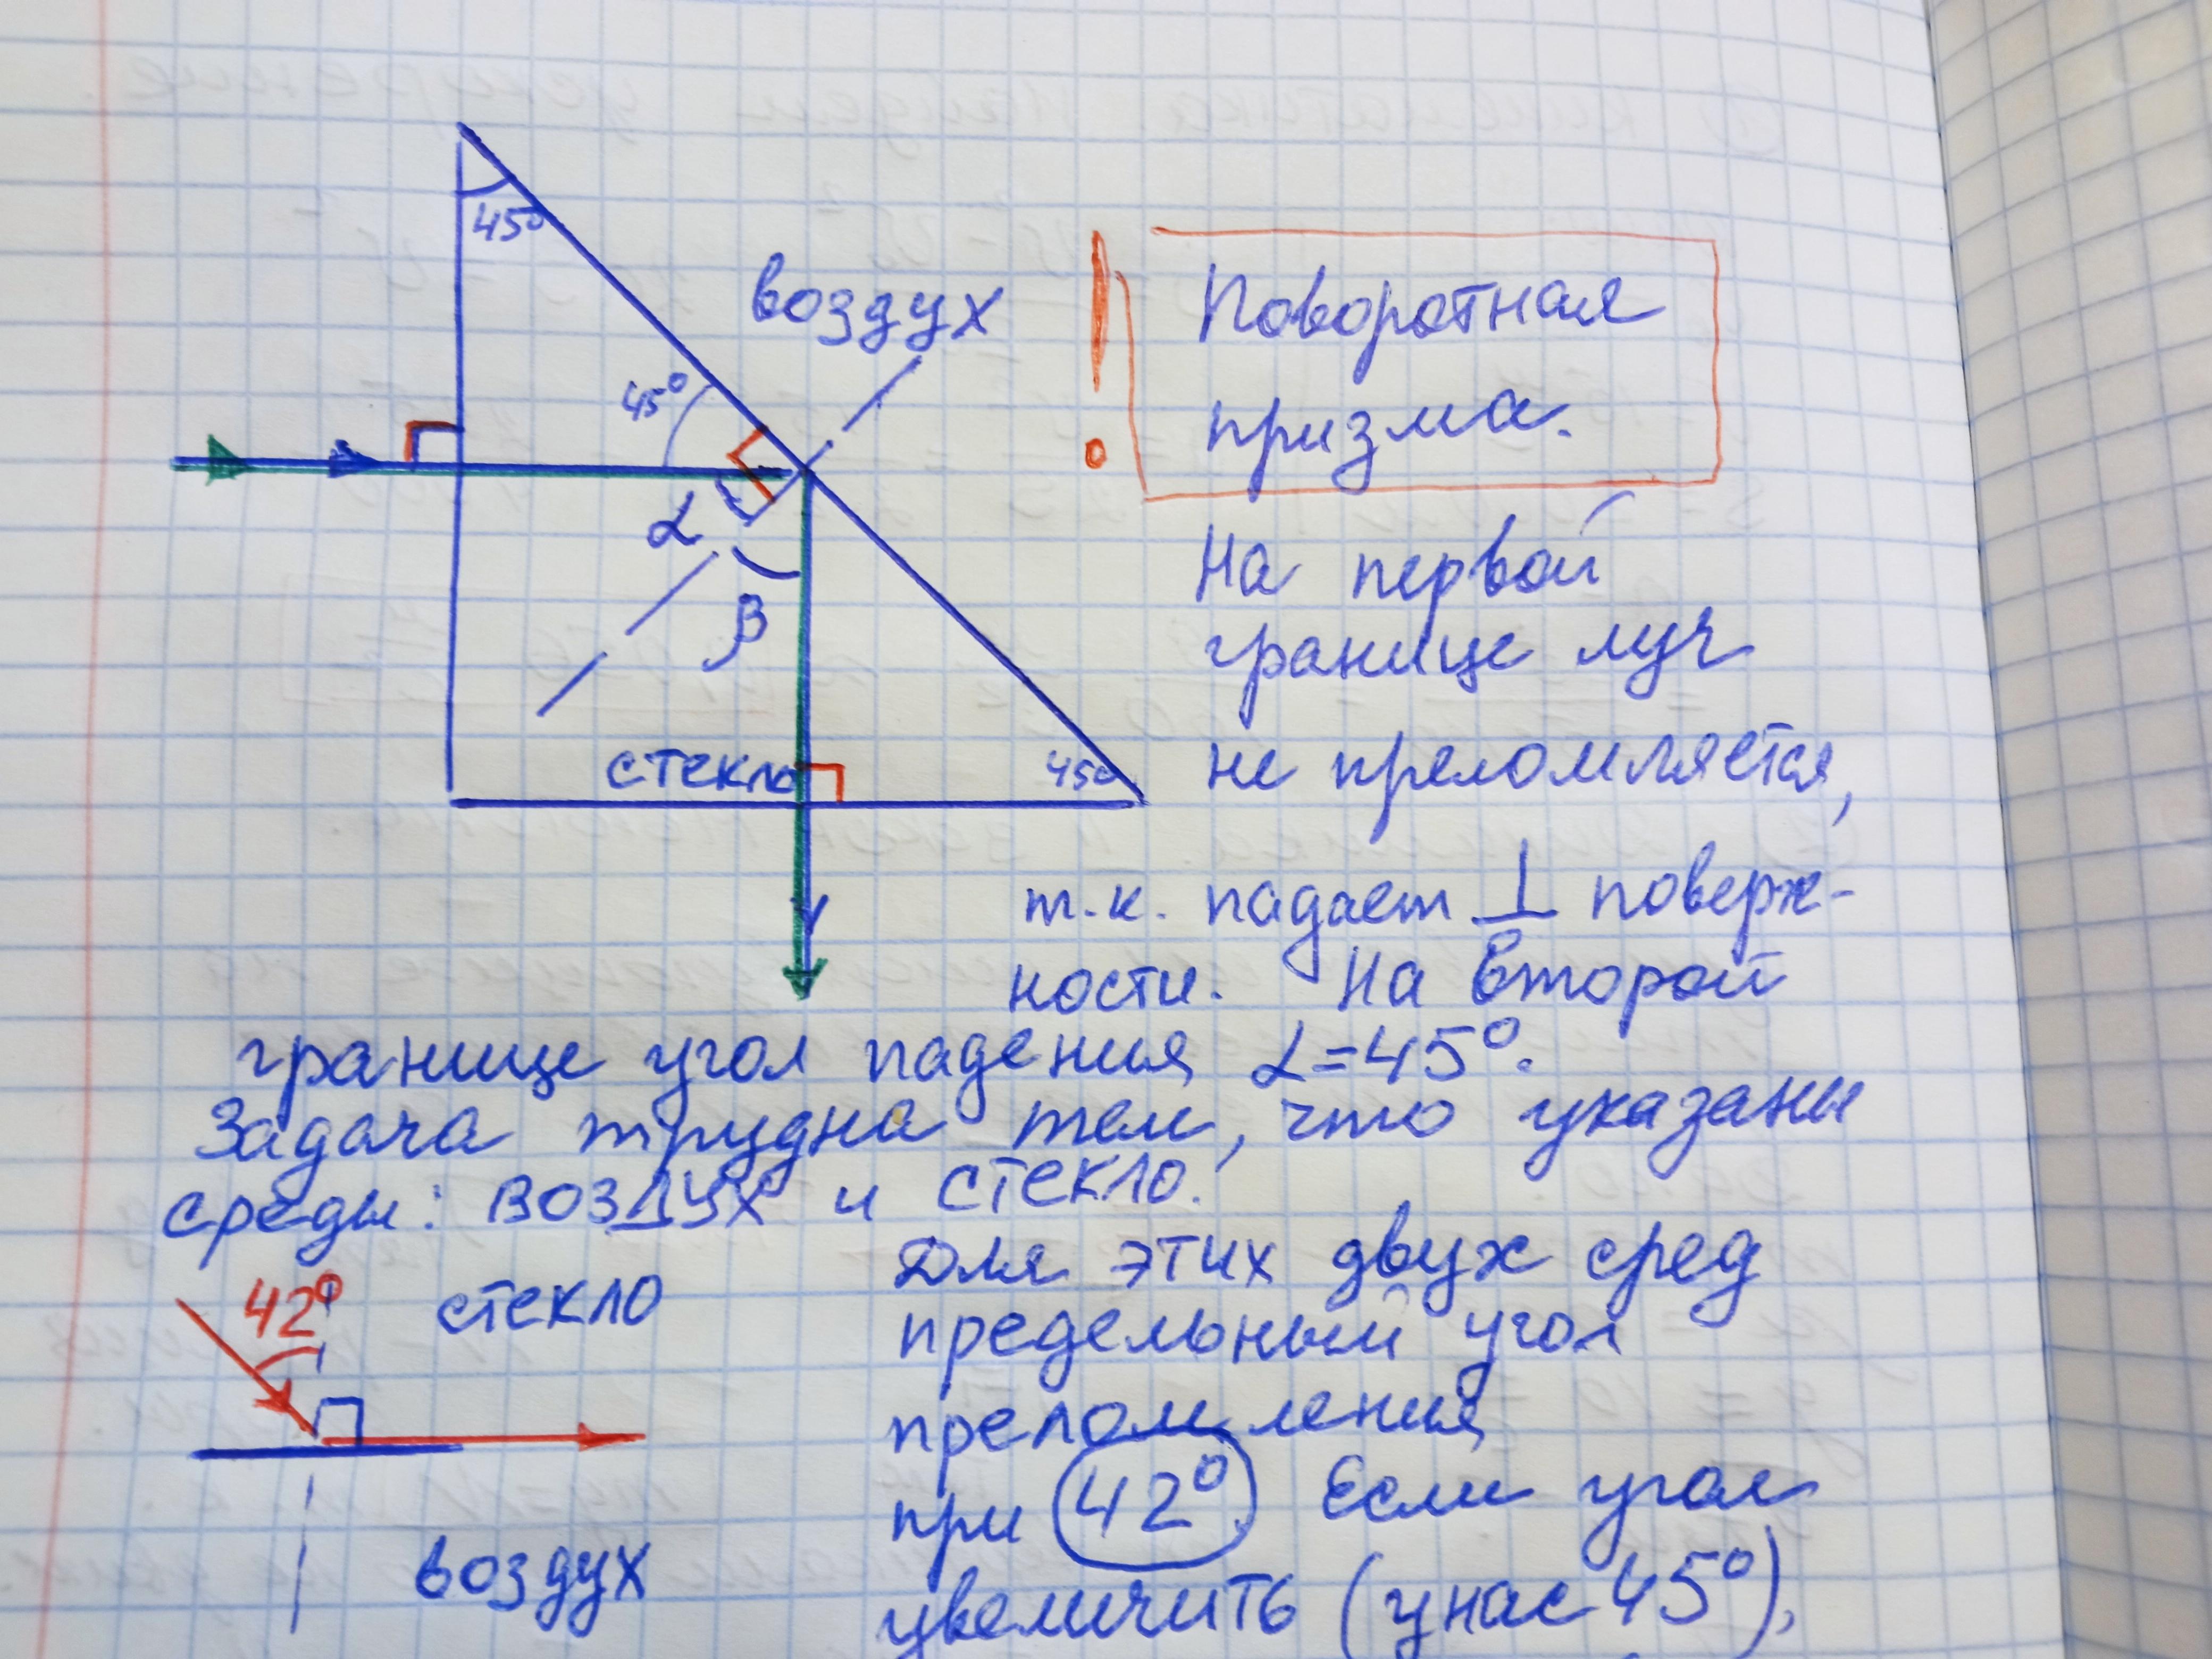 45°
воздух
45°
α
β
стекло
45°
! Поворотная
призма.
На первой
границе луч
не преломляется,
т.к. падает ⊥ поверх-
ности. На второй
границе угол падения α=45°.
Задача трудна тем, что указаны
среды: воздух и стекло.
42°
стекло
воздух
Для этих двух сред
предельный угол
преломления
при 42°. Если угол
увеличить (у нас 45°),